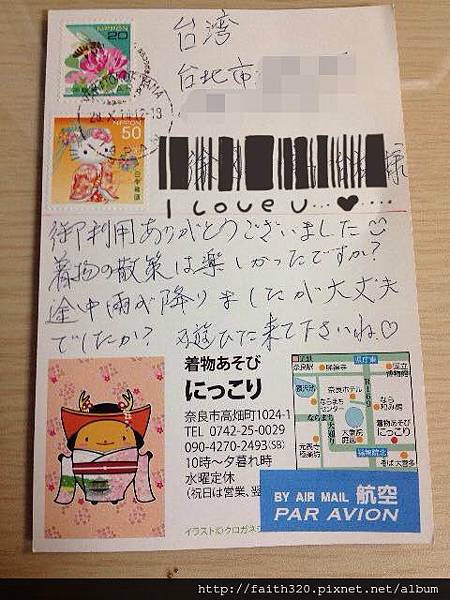 台湾
台北市
NIPPON
20
NIPPON
50
日本郵便
様
I Love u...♥.....
御利用ありがとうございました☺
着物の散策は楽しかったですか?
途中雨が降りましたが大丈夫
でしたか? 又遊びに来て下さいね♡
着物あそび
にっこり
奈良市高畑町1024-1
TEL 0742-25-0029
090-4270-2493(SB)
10時〜夕暮れ時
水曜定休
(祝日は営業、翌
イラスト©クロガネジ
県庁東
奈良ホテル
ならまち
センター
なら
和み館
着物あそび
にっこり
元興寺
極楽坊
福智院北
R169
BY AIR MAIL 航空
PAR AVION
http://faith320.pixnet.net/album